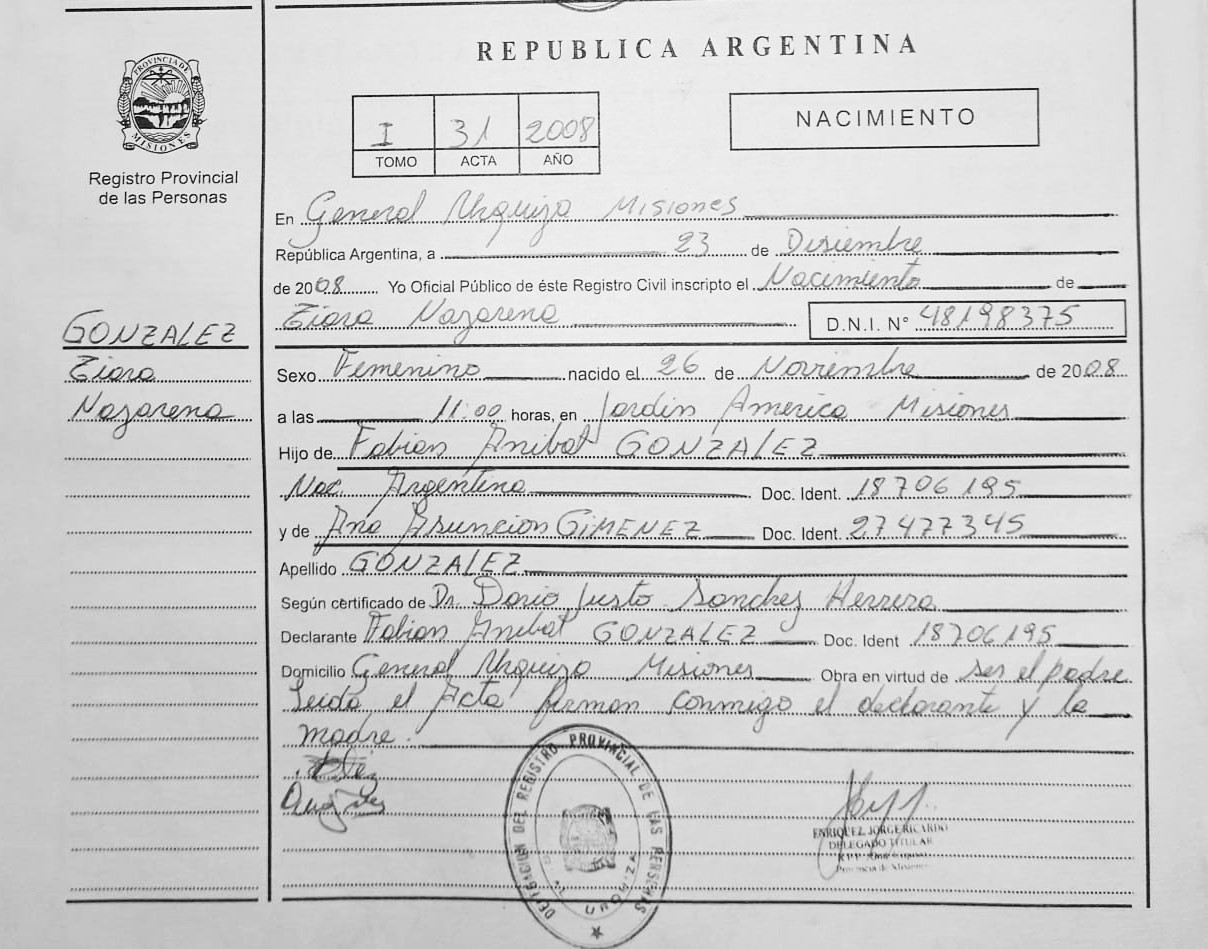 REPUBLICA ARGENTINA
PROVINCIA DE MISIONES
Registro Provincial
de las Personas
I 31 2008
TOMO ACTA AÑO
NACIMIENTO
En General Urquiza Misiones
República Argentina, a 23 de Disiembre
de 2008 Yo Oficial Público de éste Registro Civil inscripto el Nacimiento de
Tiara Nazarena D.N.I. N° 48198375
GONZALEZ
Tiara
Nazarena
Sexo Femenino nacido el 26 de Noviembre de 2008
a las 11:00 horas, en Jardin America Misiones
Hijo de Fabian Anibal GONZALEZ
Nac. Argentina Doc. Ident. 18706195
y de Ana Asuncion GIMENEZ Doc. Ident. 27477345
Apellido GONZALEZ
Según certificado de Dr. Dario Justo Sanchez Herrera
Declarante Fabian Anibal GONZALEZ Doc. Ident 18706195
Domicilio General Urquiza Misiones Obra en virtud de ser el padre
Leida el Acta firman conmigo el declarante y la
madre.
DELEGACION DEL REGISTRO PROVINCIAL DE LAS PERSONAS
URQUIZA
ENRIQUEZ JORGE RICARDO
DELEGADO TITULAR
Provincia de Misiones